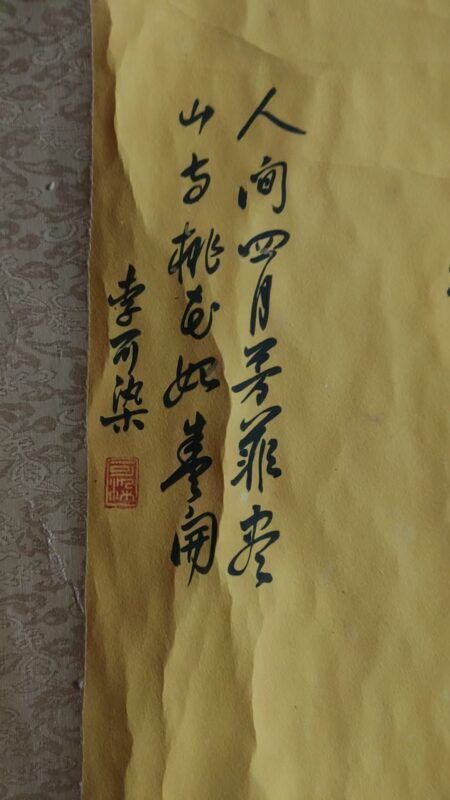 人间四月芳菲尽
山寺桃花始盛開
李可染
可染